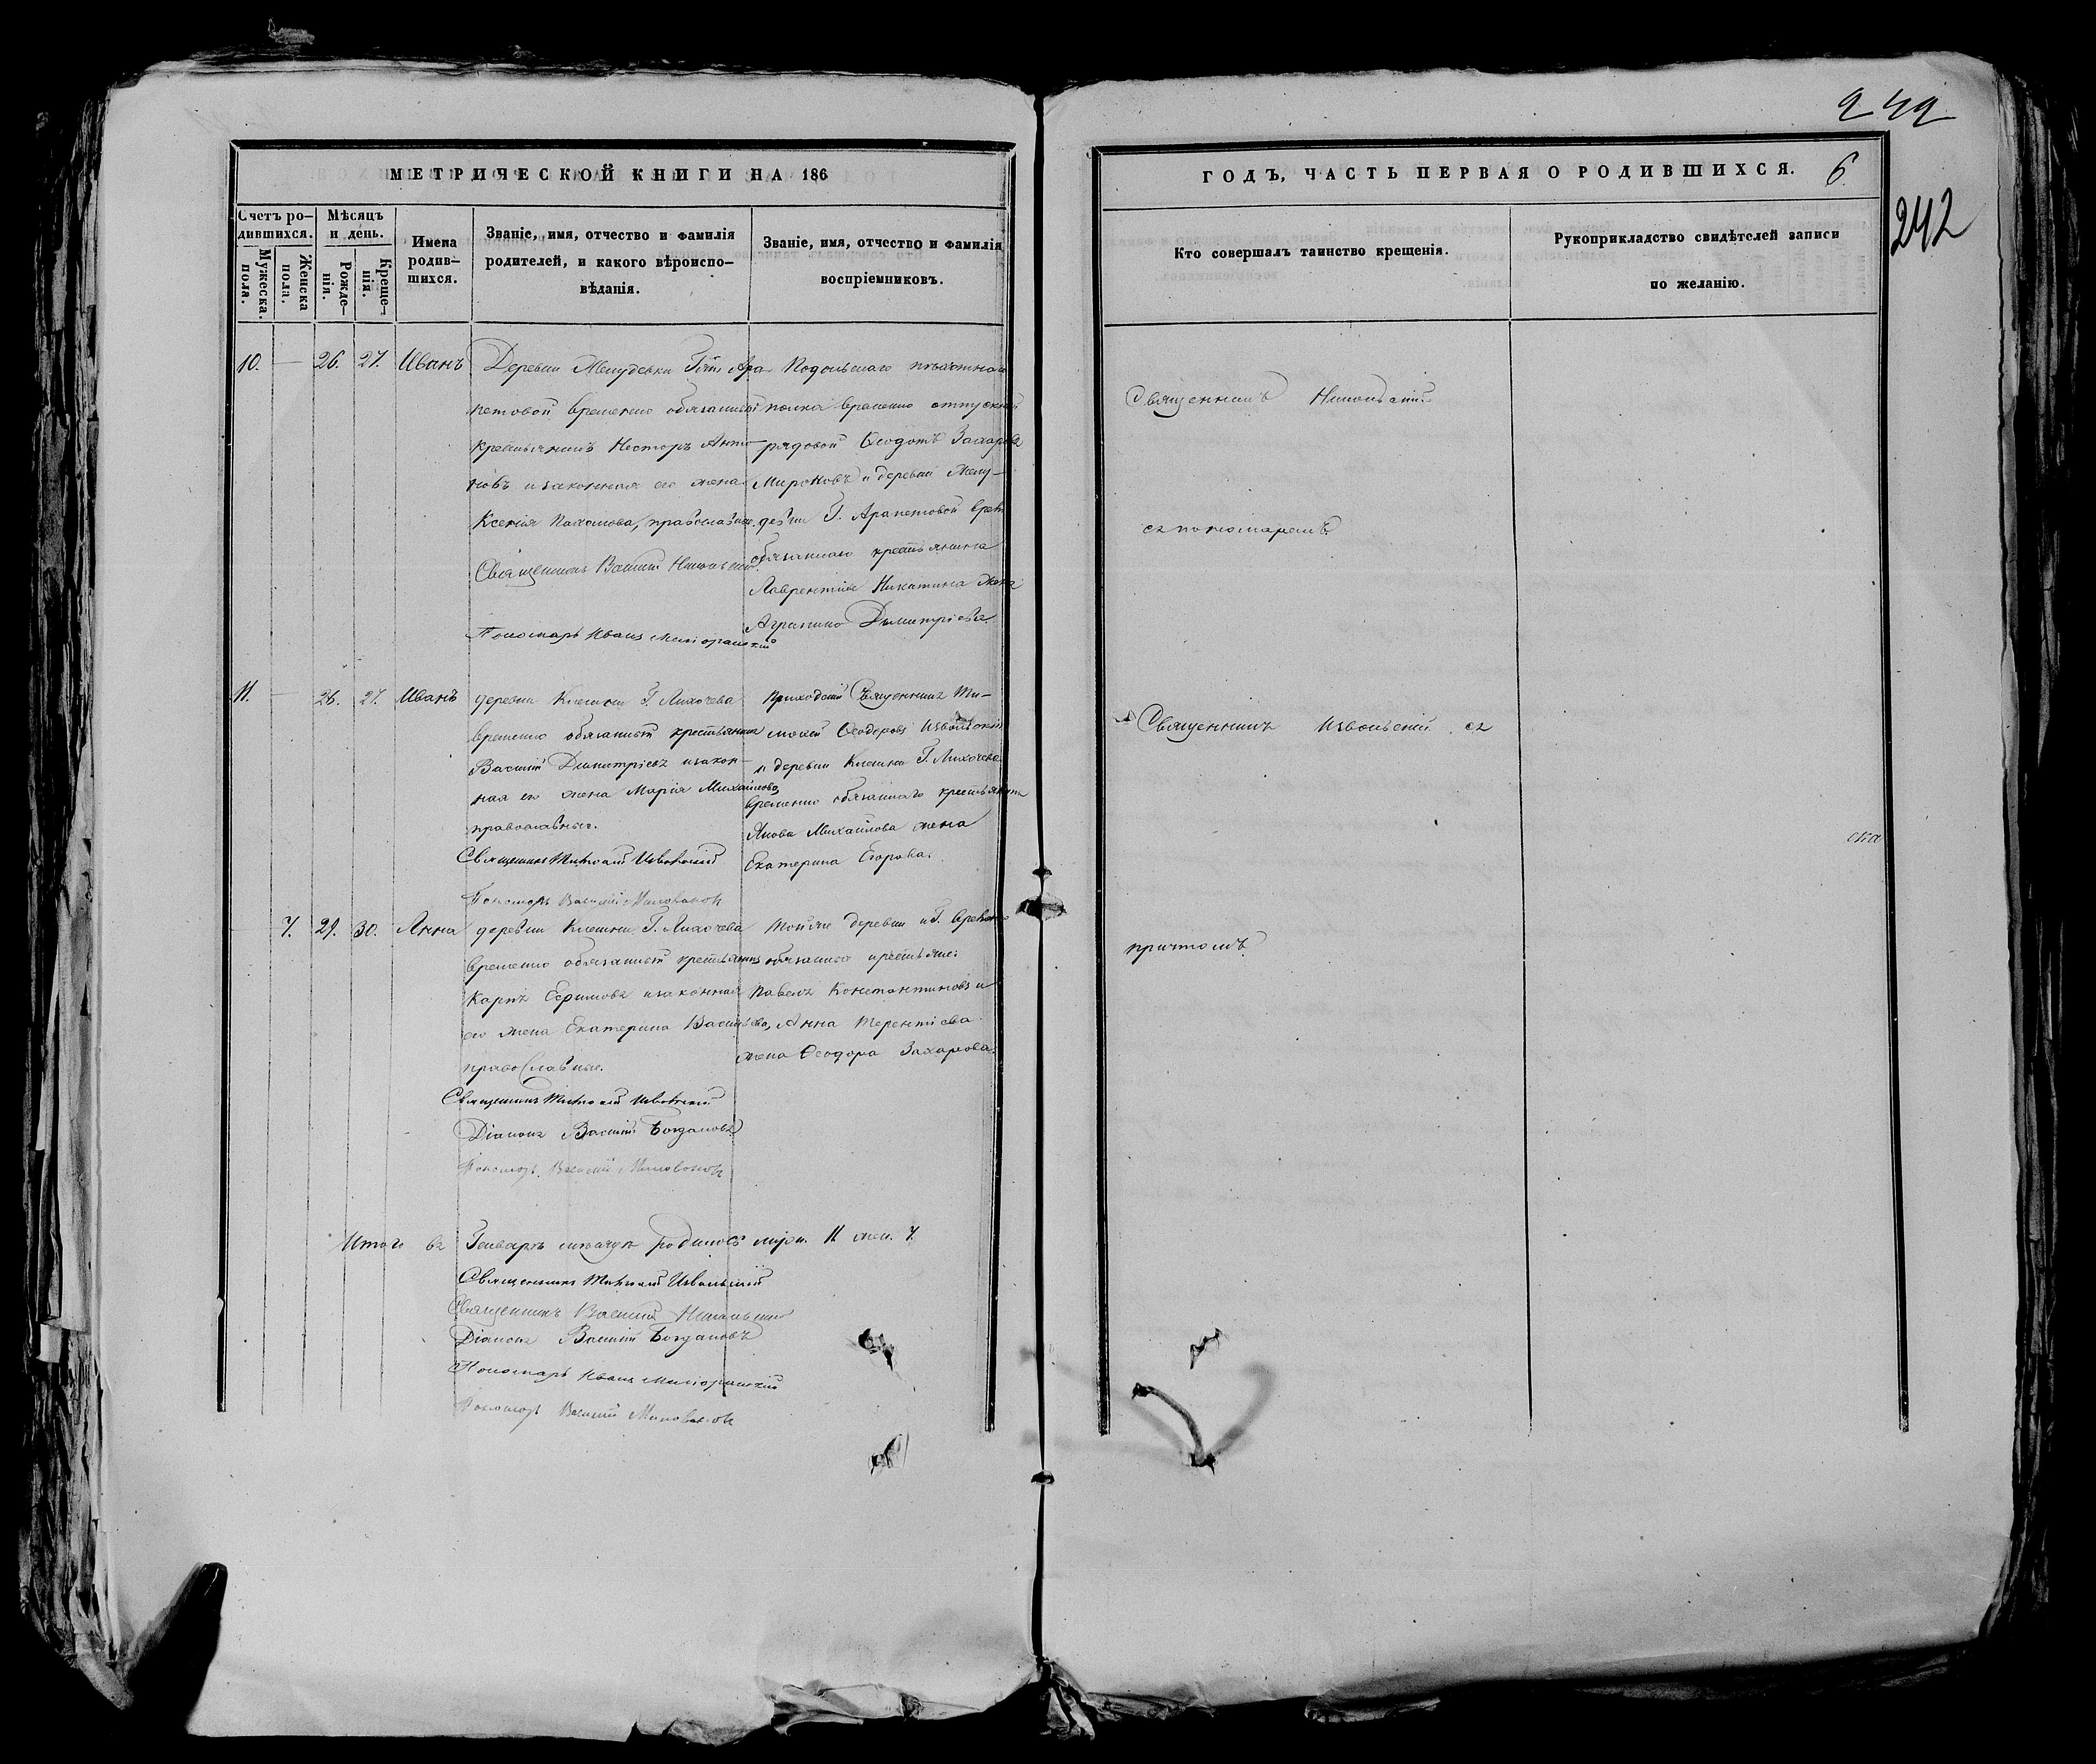 242
МЕТРИЧЕСКОЙ КНИГИ НА 186
ГОДЪ, ЧАСТЬ ПЕРВАЯ О РОДИВШИХСЯ.
6
242
Счетъ ро-
дившихся.
Мужеска
пола.
Женска
пола.
Мѣсяцъ
и день.
Рожде-
нія.
Креще-
нія.
Имена
родив-
шихся.
Званіе, имя, отчество и фамилія
родителей, и какого вѣроиспо-
вѣданія.
Званіе, имя, отчество и фамилія
воспріемниковъ.
Кто совершалъ таинство крещенія.
Рукоприкладство свидѣтелей записи
по желанію.
10. — 26. 27. Иванъ
Деревни Г. Ара-
петовой временно обязанный
крестьянинъ Несторъ Анто-
новъ и законная его жена
Ксенія Пахомова, православные.
Священникъ Василій
Пономарь Иванъ
Подольскаго пѣхотнаго
полка временно отпускной
рядовой Ѳеодотъ Захаровъ
Мироновъ и деревни
Г. Арапетовой врем.
обязаннаго крестьянина
Лаврентія Никитина жена
Димитріева.
Священникъ
съ пономаремъ.
11. — 26. 27. Иванъ
деревни Г. Лихачева
временно обязанный крестьянинъ
Василій Димитріевъ и закон-
ная его жена Марія Михайлова,
православные.
Священникъ Тимоѳей Извольскій
Пономарь Василій
Приходскій Священникъ Ти-
моѳей Ѳеодоровъ Извольскій
и деревни Г. Лихачева
временно обязаннаго крестьянина
Якова Михайлова жена
Екатерина Егорова.
Священникъ Извольскій съ
ска
причтомъ.
7. 29. 30. Анна
деревни Г. Лихачева
временно обязанный крестьянинъ
Карпъ Ефимовъ и законная
его жена Екатерина Васильева,
православные.
Священникъ Тимоѳей Извольскій
Діаконъ Василій Богдановъ
Пономарь Василій
Той же деревни и Г. временно
обязанные крестьяне:
Павелъ Константиновъ и
Анна Терентіева
жена Ѳеодора Захарова.
Итого въ Генварѣ мѣсяцѣ родилось муж. 11 жен. 7.
Священникъ Тимоѳей Извольскій
Священникъ Василій
Діаконъ Василій Богдановъ
Пономарь Иванъ
Пономарь Василій